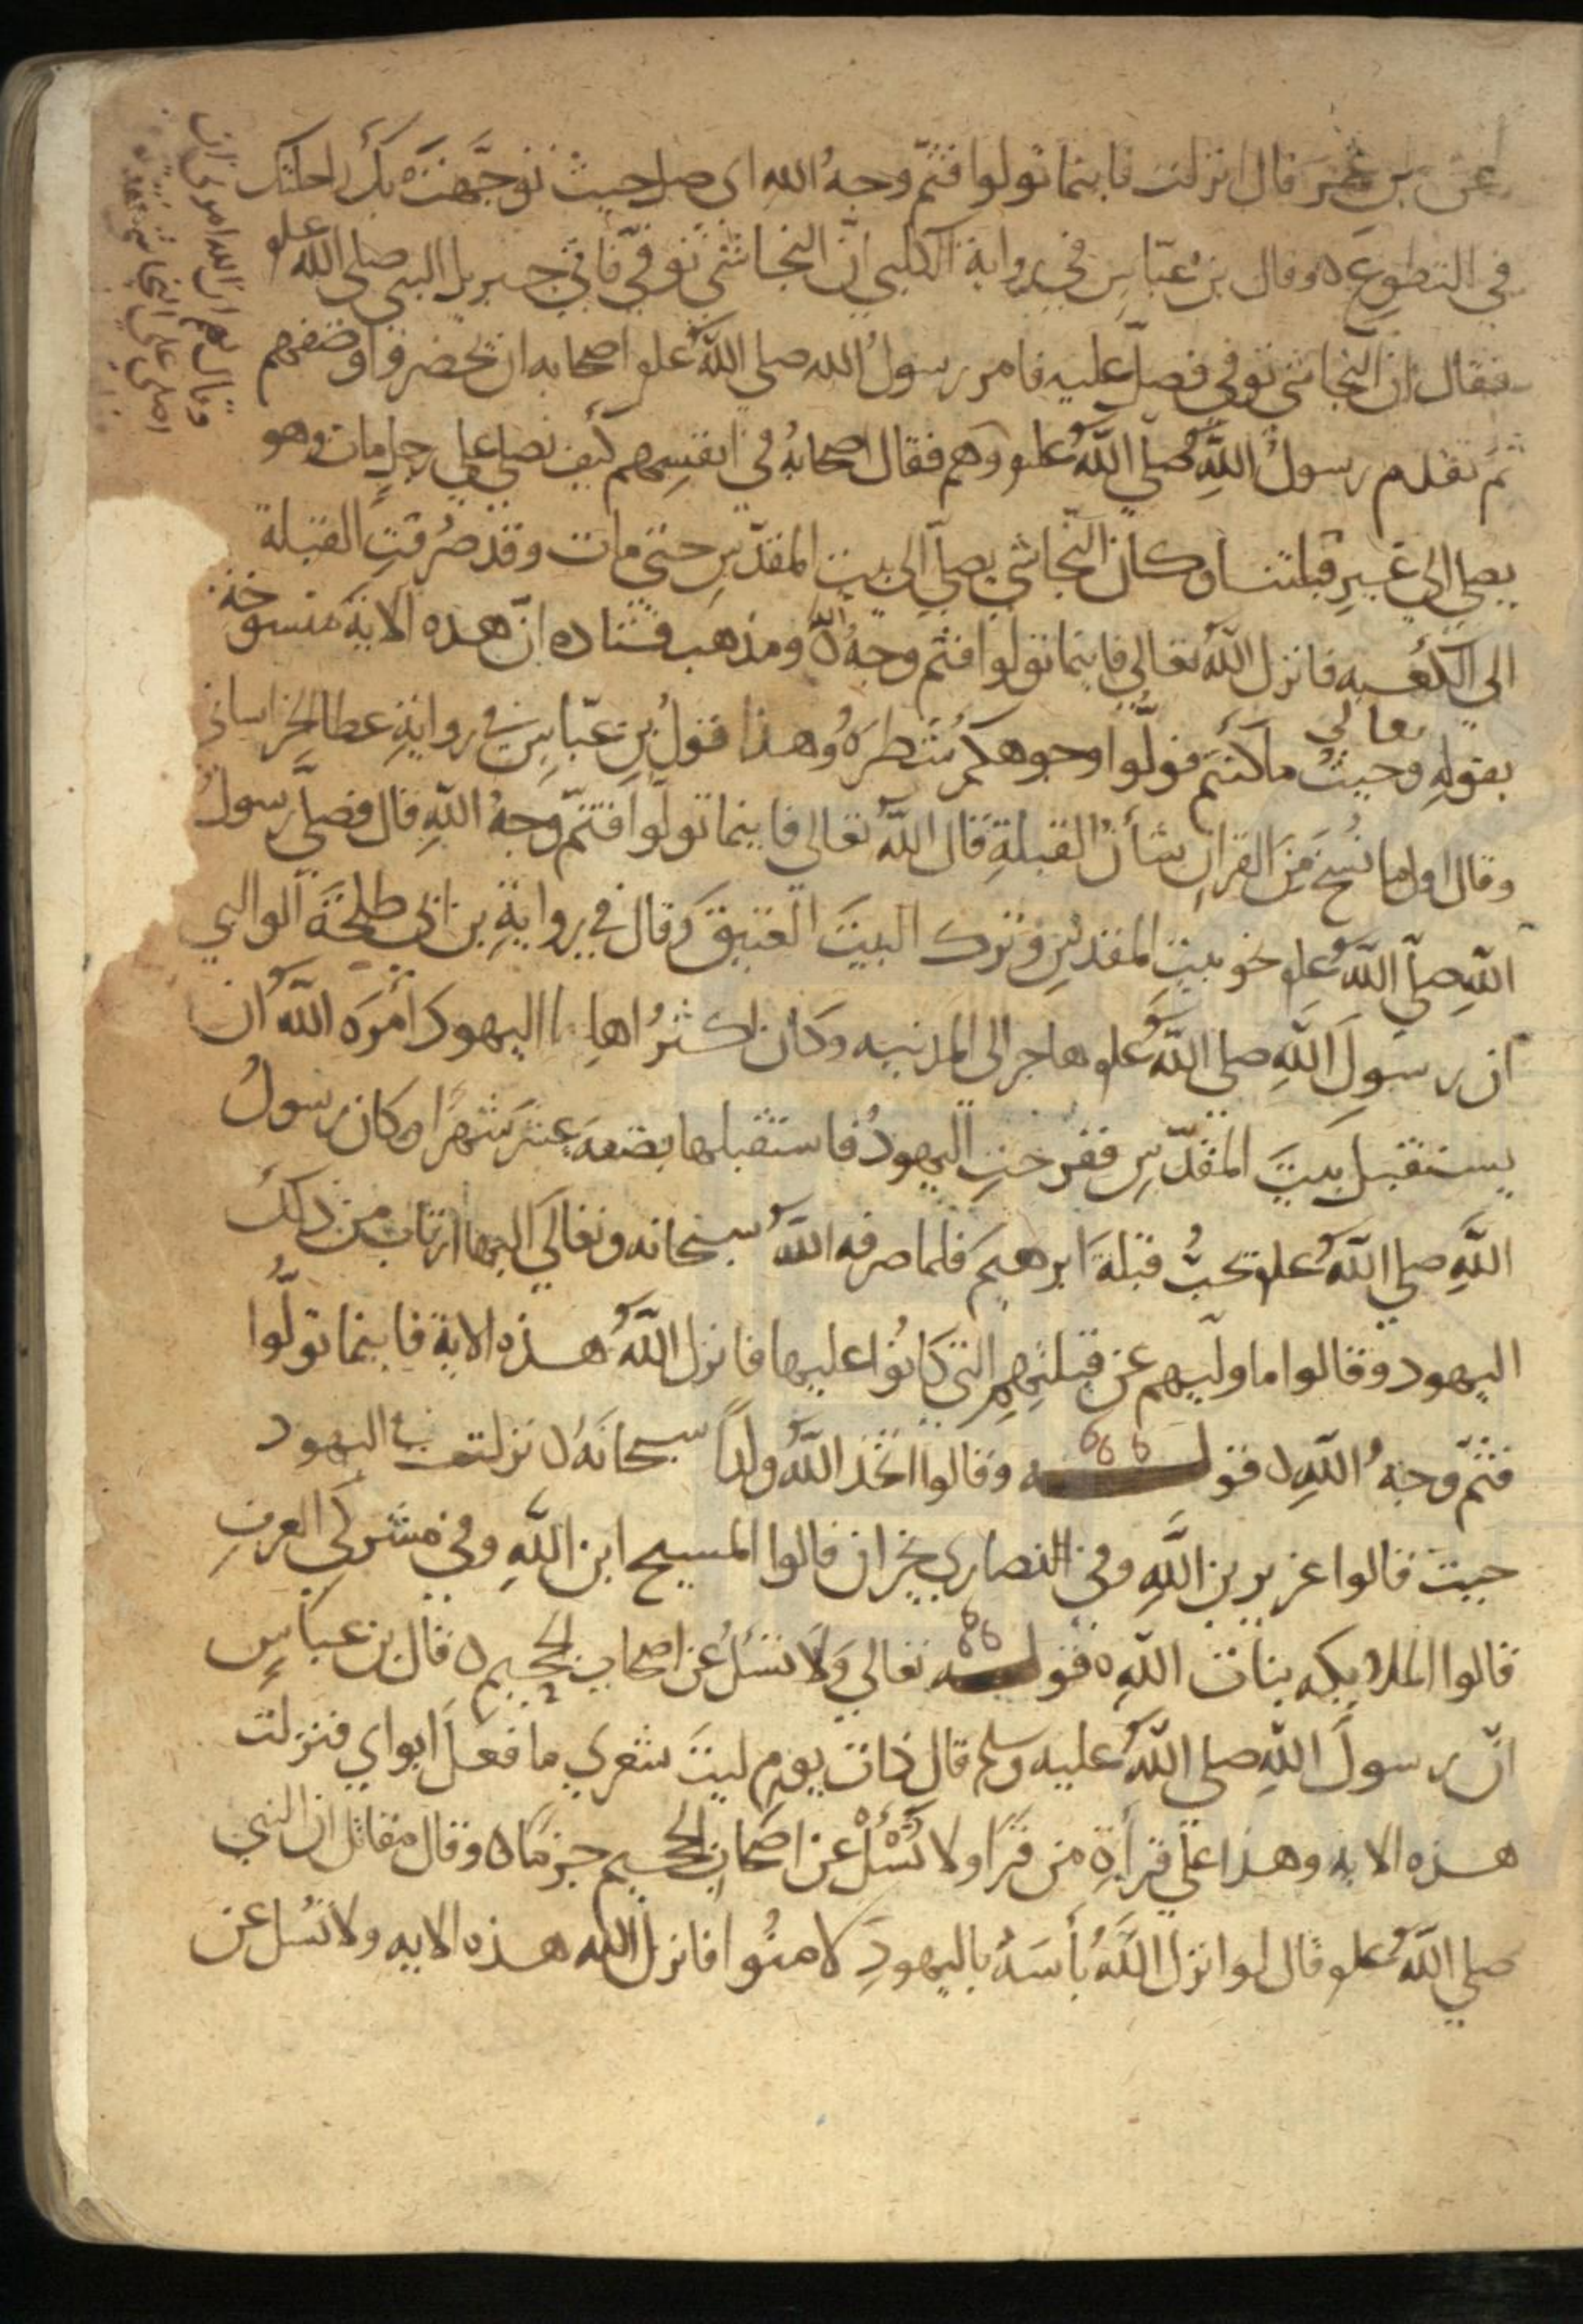 عن بن عمر قال انزلت فاينما تولوا فثمّ وجهُ الله اى صل حيث توجَّهَت بك راحلتك
في التطوع ه وقال بن عبّاسٍ في رواية الكلبي انّ النجاشي توفي فاتي جبريل النبي صلى الله علىو
فقال ان النجاشي توفي فصلّ عليه فامر رسول الله صلى اللهُ علىو اصحابه ان يحضروا وصفهم
ثم تقدم رسولُ اللهِ صلى اللهُ علىو وقال لهم ان الله امرني ان اصلي على النجاشي
وهم فقال اصحابهُ في انفسهم كيف نصلي على رجل مات وهو
يصلي الي غير قبلتنا وكان النّجاشي يصلّي الى بيت المقدّسِ حتى مات وقد صُرفتِ القبلة
الى الكعبه فانزل اللهُ تعالي فاينما تولوا فثم وجهُ الله ومذهب قتاده ان هذه الاية منسوخة
بقولهِ تعالي وحيثُ ما كنتم فولّوا وجوهكم شطرَهُ وهذا قولُ بن عبّاسٍ في روايةِ عطا الخراساني
وقال اول ما نُسخ مِنَ القرانِ شأنُ القبلةِ قال اللهُ تعالى فاينما تولوا فثمّ وجهُ اللهِ قال فصلّى رسولُ
اللهِ صلّى اللهُ علىو نحو بيت المقدسِ وترك البيتَ العتيق وقال في روايةِ بن ابي طلحة الوالبي
ان رسولَ اللهِ صلى اللهُ علىو هاجر الى المدينه وكان اكثرُ اهلها اليهود امَرَه اللهُ ان
يستقبل بيتَ المقدّسِ ففرحتِ اليهودُ فاستقبلها بضعه عشَر شهرًا وكان رسولُ
اللهِ صلى اللهُ علىو يحبُّ قبلةَ ابرهيم فلما صرفه اللهُ سبحانه وتعالى اليها ارتاب من ذلك
اليهود وقالوا ما وليهم عن قبلتِهِم التي كانُوا عليها فانزل اللهُ هذه الاية فاينما تولُّوا
فثمّ وجهُ اللهِ ه قولـــه وقالوا اتخذ اللهُ ولدًا سبحانَهُ ه نزلت في اليهود
حيث قالوا عزير بن اللهِ وفي النصارى نجران قالوا المسيح ابن اللهِ وفي مشركي العربِ
قالوا الملايكه بنات اللهِ ه قولـــه تعالي ولا تسئل عن اصحاب الجحيم ه قال بن عباسٍ
انّ رسولَ اللهِ صلى اللهُ عليه وسلم قال ذات يومٍ ليتَ شعري ما فعلَ ابواي فنزلت
هذه الايه وهذا علي قراةِ من قرا ولا تَسْئَلْ عن اصحاب الجحيم جزمًا ه وقال مقاتل ان النبي
صلي اللهُ علىو قال لو انزل اللهُ بأسَهُ باليهودِ لامنُوا فانزل الله هذه الايه ولا تُسل عن